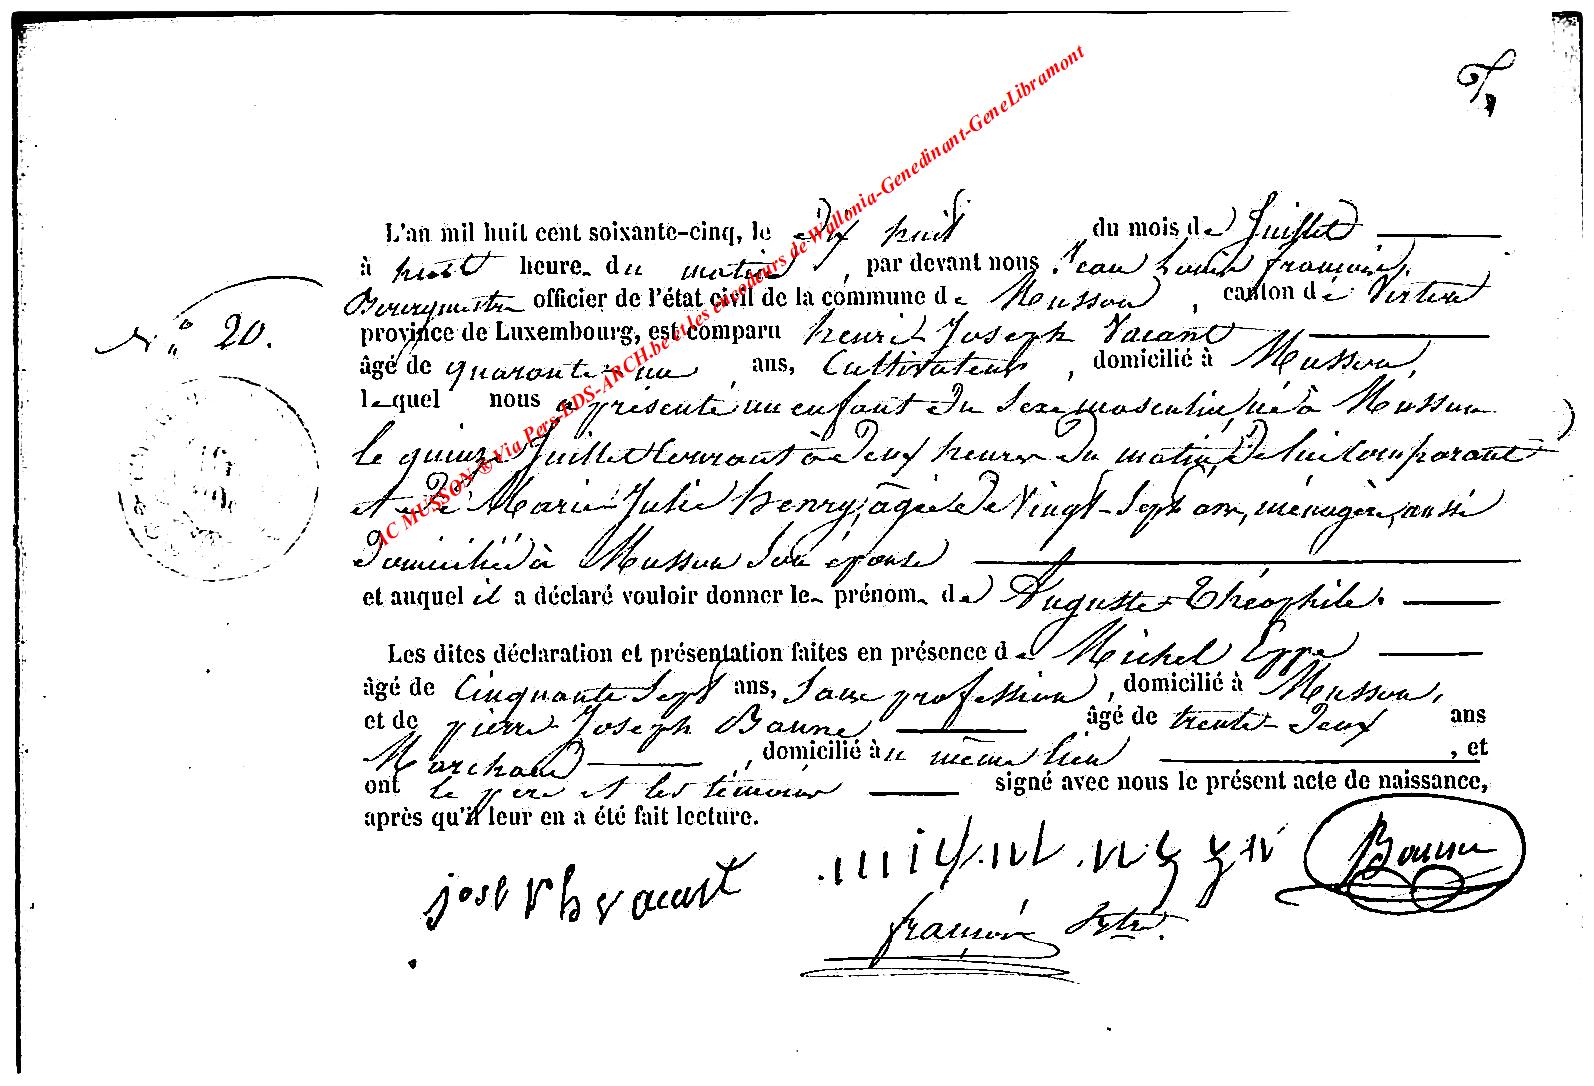 L'an mil huit cent soixante-cinq, le dix huit du mois de Juillet
à huit heure du matin, par devant nous Jean Louis François,
Bourgmestre officier de l'état civil de la commune de Musson, canton de Virton
N° 20.
province de Luxembourg, est comparu henri Joseph Vacant
âgé de quarante un ans, Cultivateur, domicilié à Musson,
lequel nous a présenté un enfant du sexe masculin, né à Musson
le quinze Juillet courant à deux heures du matin, de lui comparant
et de Marie Julie henry, âgée de Vingt-Sept ans, ménagère, aussi
domiciliée à Musson son épouse
et auquel il a déclaré vouloir donner le prénom de Auguste Théophile.
Les dites déclaration et présentation faites en présence de Michel Eppe
âgé de Cinquante Sept ans, Sans profession, domicilié à Musson,
et de pierre Joseph Baune âgé de trente-deux ans
Marchand, domicilié au même lieu, et
ont le père et les témoins signé avec nous le présent acte de naissance,
après qu'il leur en a été fait lecture.
joseph vacant
Baune
françois
AC MUSSON ® Via Pers-EDS-ARCH.be et les encodeurs de Wallonia-Genedinant-GeneLibramont